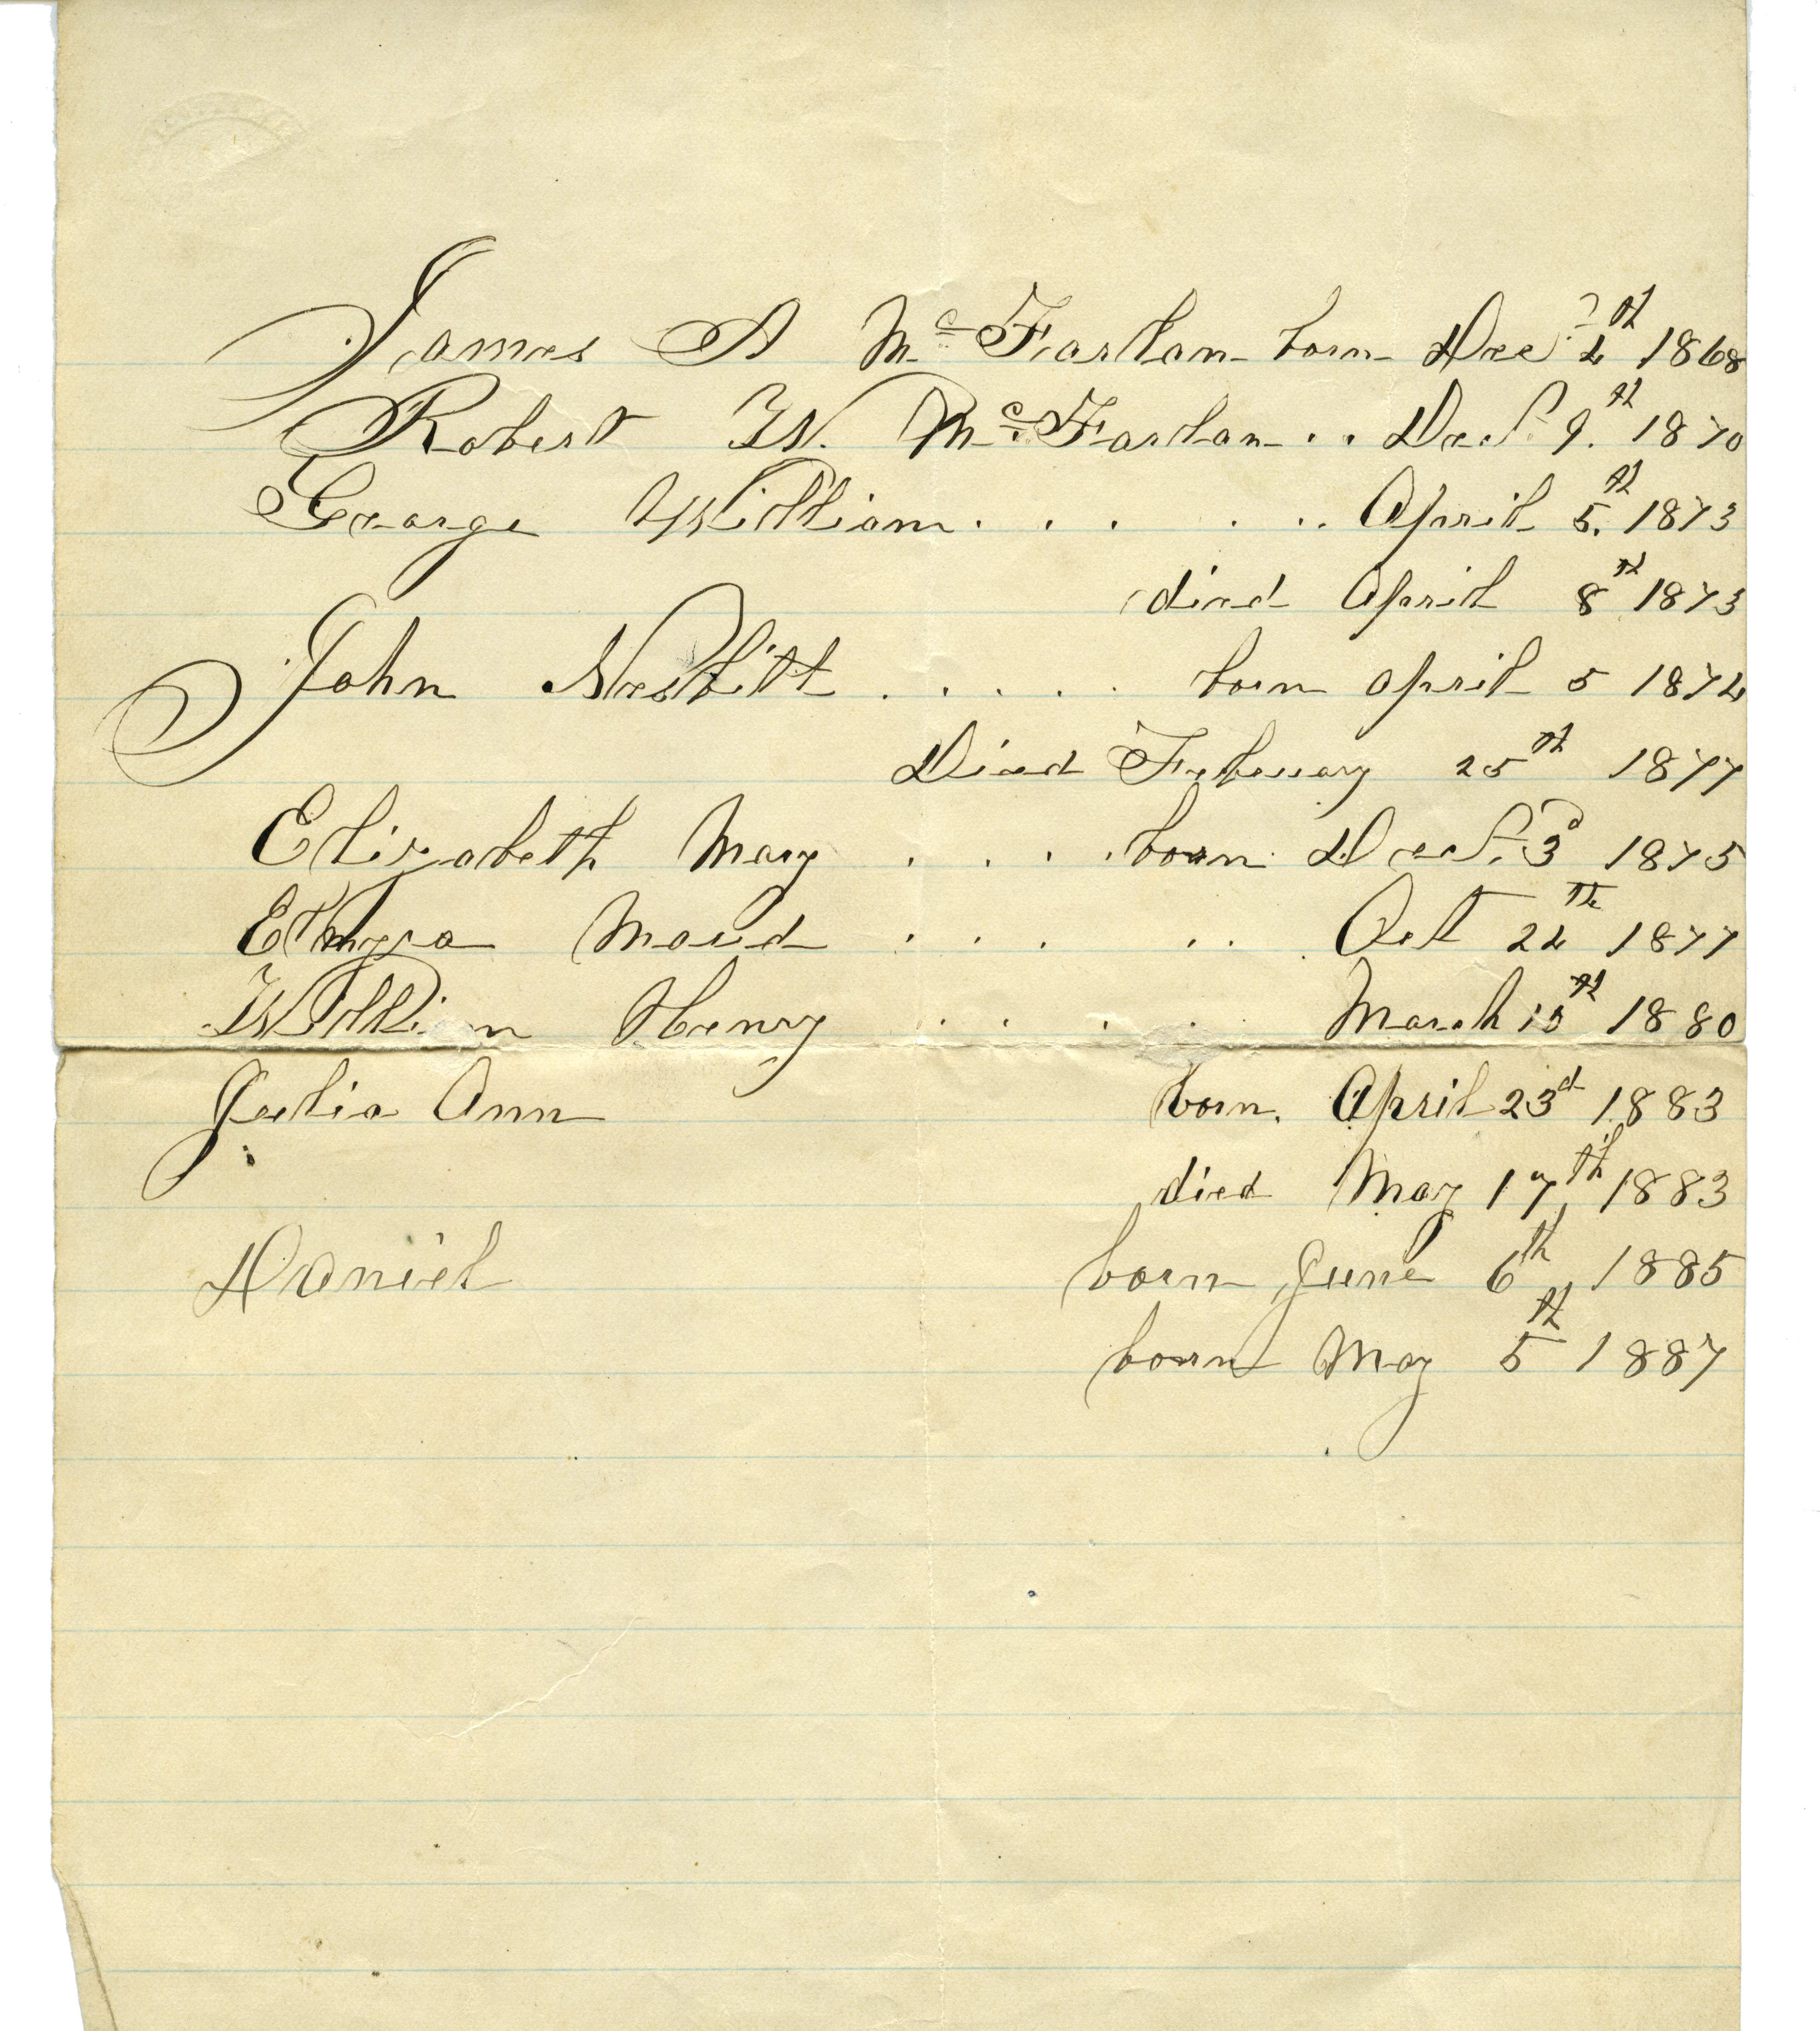 James A McFarlan born Dec 4th 1868
Robert W. McFarlan . . Dec. 9.th 1870
George William . . . . . . April 5.th 1873
died April 8th 1873
John Nesbitt . . . . . born April 5 1874
Died Febuary 25th 1877
Elizabeth May . . . . born Dec. 3d 1875
Maud . . . . . . Oct 24th 1877
William Henry . . . . March 10th 1880
Julia Ann born. April 23d 1883
died May 17th 1883
Daniel born June 6th 1885
born May 5th 1887